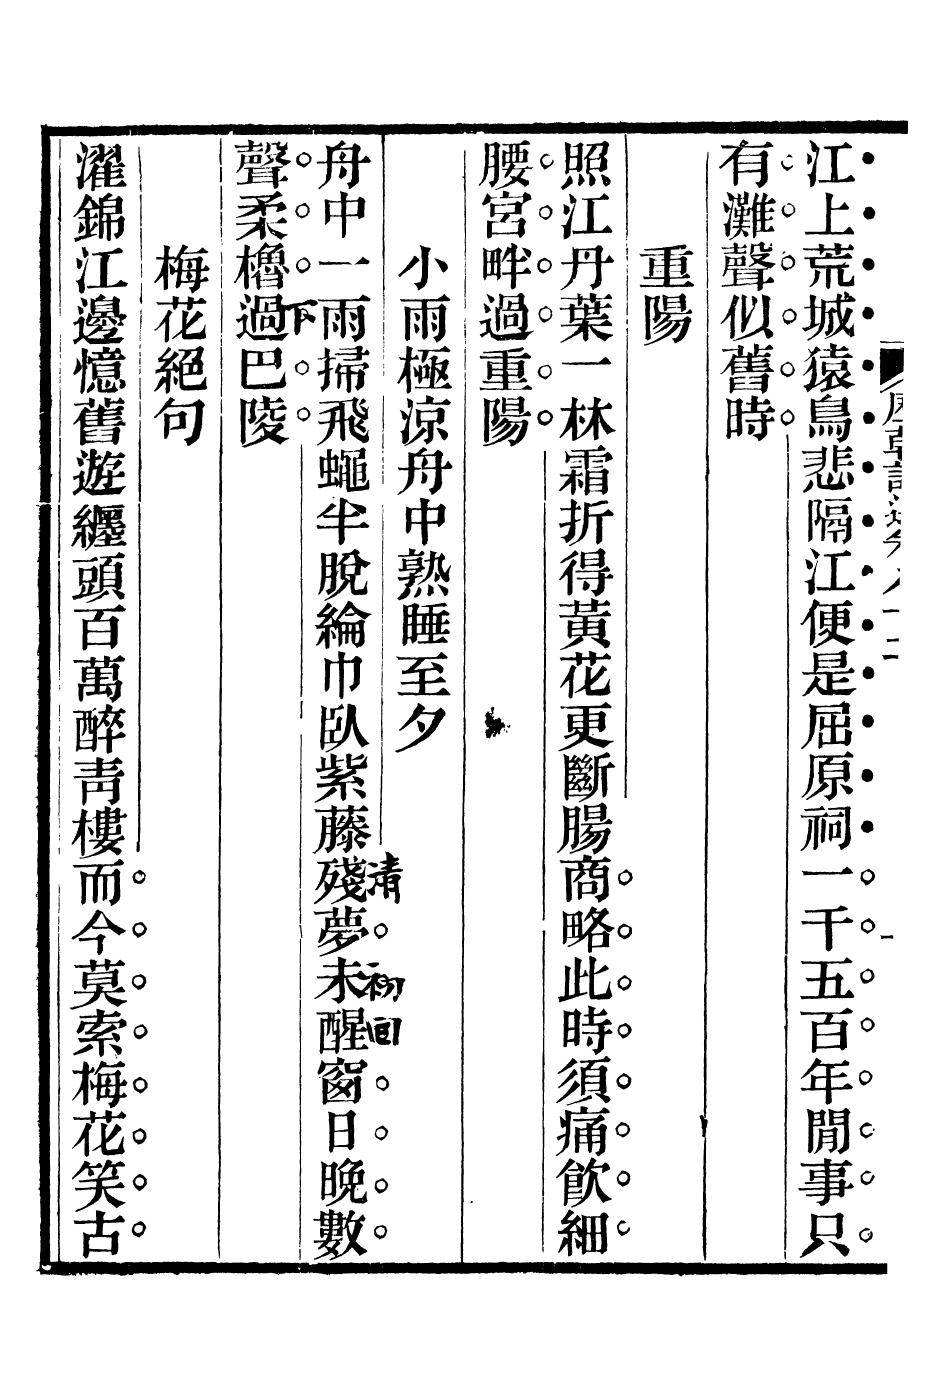 江上荒城猿鳥悲隔江便是屈原祠一千五百年閒事只
有灘聲似舊時
重陽
照江丹葉一林霜折得黃花更斷腸商略此時須痛飮細
腰宮畔過重陽
小雨極涼舟中熟睡至夕
舟中一雨掃飛蠅半脫綸巾臥紫藤殘夢未醒窗日晚數
清
初回
聲柔櫓過巴陵
下
梅花絕句
濯錦江邊憶舊遊纏頭百萬醉靑樓而今莫索梅花笑古